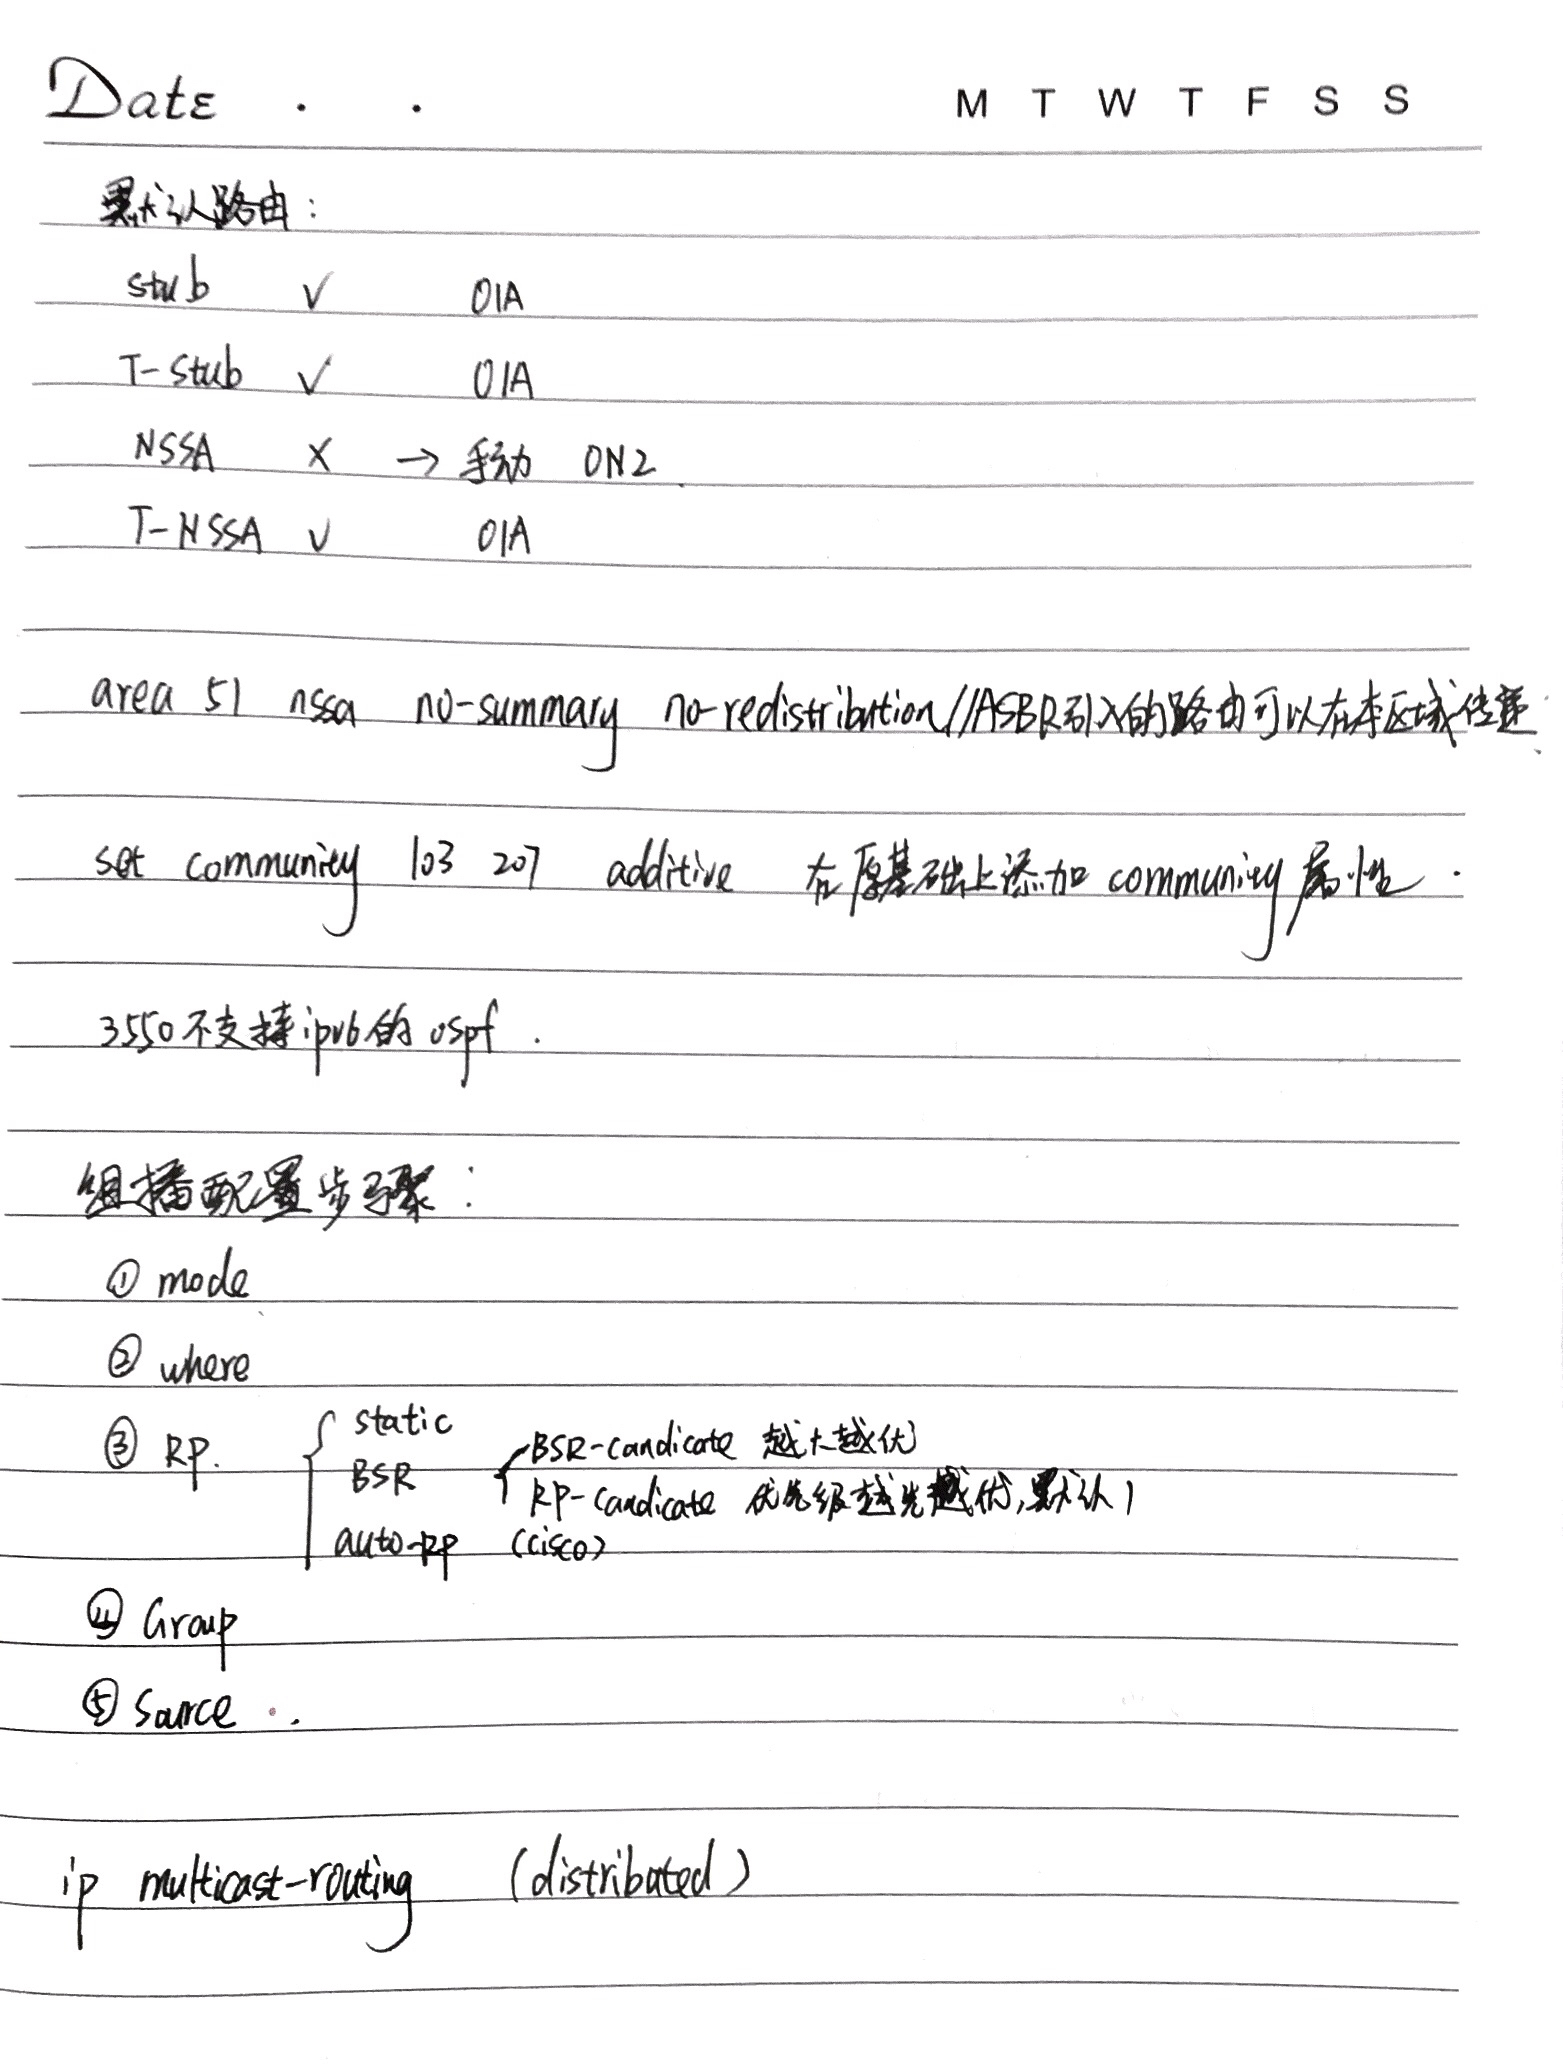 Date . . M T W T F S S
默认路由:
stub √ OIA
T-stub √ OIA
NSSA × → 手动 ON2
T-NSSA √ OIA
area 51 nssa no-summary no-redistribution//ASBR引入的路由可以在本区域传递
set community 103 207 additive 在原基础上添加 community 属性.
3550不支持ipv6的ospf.
组播配置步骤:
① mode
② where
③ RP. static
BSR BSR-candicate 越大越优
RP-candicate 优先级越先越优,默认1
auto-RP (cisco)
④ Group
⑤ Source
ip multicast-routing (distributed)